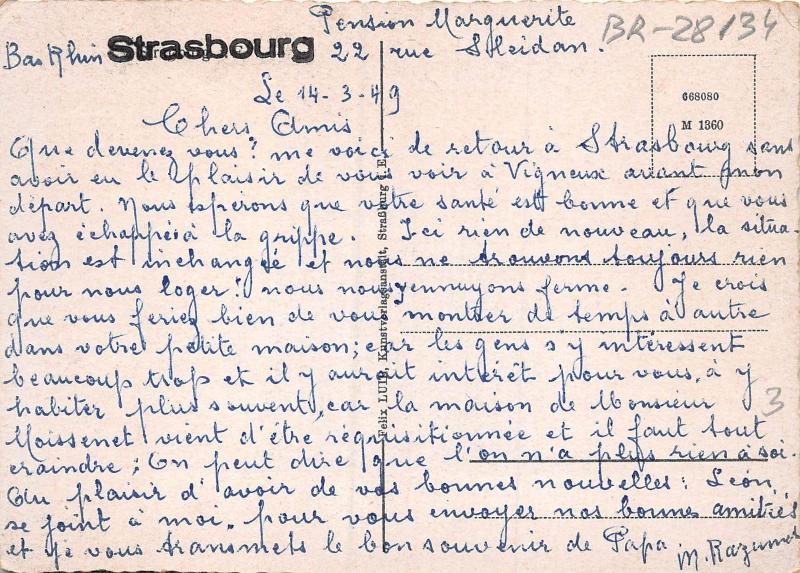 Pension Marguerite
BR-28/34
Bas Rhin Strasbourg 22 rue Sleidan.
Le 14-3-49
668080
M 1360
Chers Amis
Que devenez vous? me voici de retour à Strasbourg sans
avoir eu le plaisir de vous voir à Vigneux avant mon
départ. Nous espérons que votre santé est bonne et que vous
avez échappé à la grippe. Ici rien de nouveau, la situa-
tion est inchangée et nous ne trouvons toujours rien
pour nous loger! nous nous y ennuyons ferme. Je crois
que vous feriez bien de vous montrer de temps à autre
dans votre petite maison; car les gens s'y intéressent
beaucoup trop et il y aurait intérêt pour vous, à y
habiter plus souvent, car la maison de Monsieur
3
Moissenet vient d'être réquisitionnée et il faut tout
craindre; On peut dire que l'on n'a plus rien à soi.
Au plaisir d'avoir de vos bonnes nouvelles: Léon,
se joint à moi, pour vous envoyer nos bonnes amitiés
et je vous transmets le bon souvenir de Papa.
Felix LUIB, Kunstverlagsanstalt, Straßburg i. E.